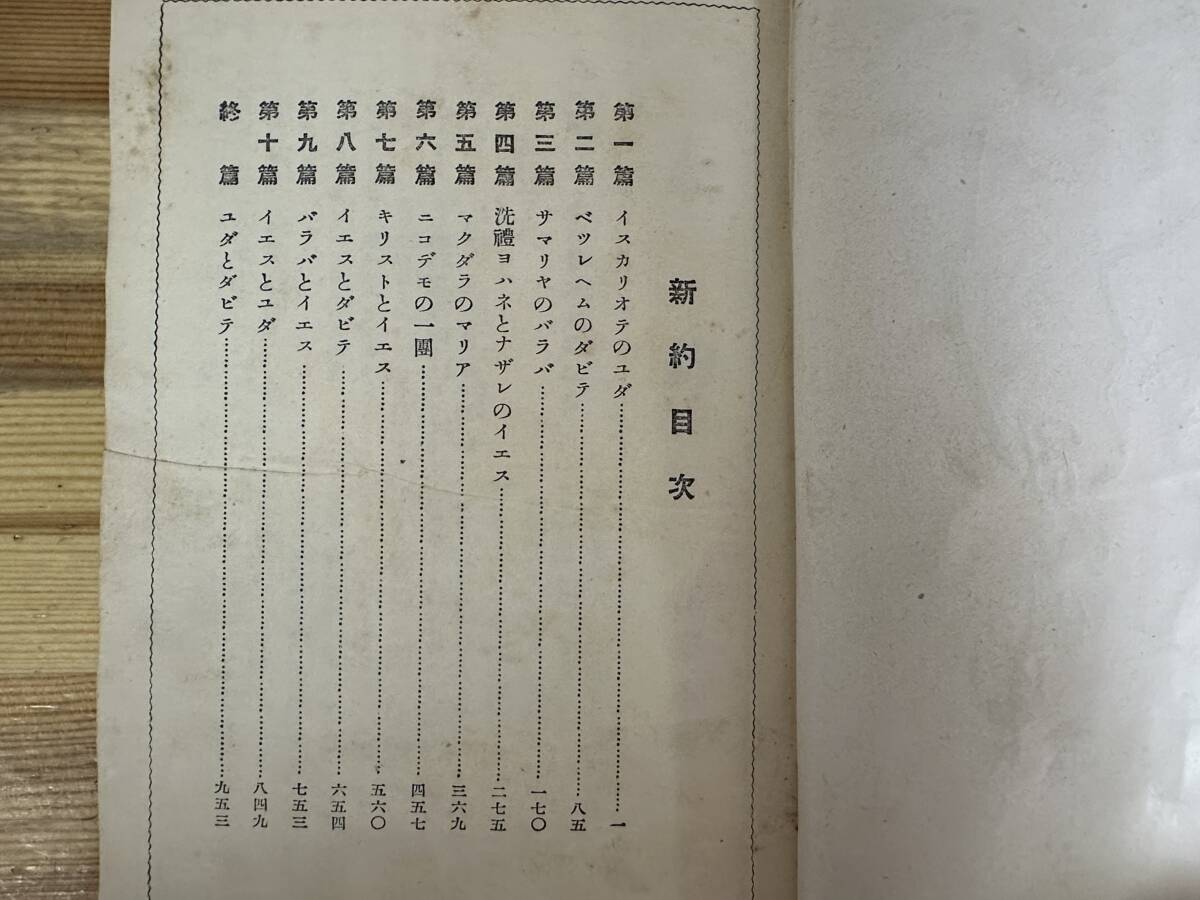 新約目次
第一篇 イスカリオテのユダ…………一
第二篇 ベツレヘムのダビテ…………八五
第三篇 サマリヤのバラバ…………一七〇
第四篇 洗禮ヨハネとナザレのイエス…………二七五
第五篇 マクダラのマリア…………三六九
第六篇 ニコデモの一團…………四五七
第七篇 キリストとイエス…………五六〇
第八篇 イエスとダビテ…………六五四
第九篇 バラバとイエス…………七五三
第十篇 イエスとユダ…………八四九
終篇 ユダとダビテ…………九五三